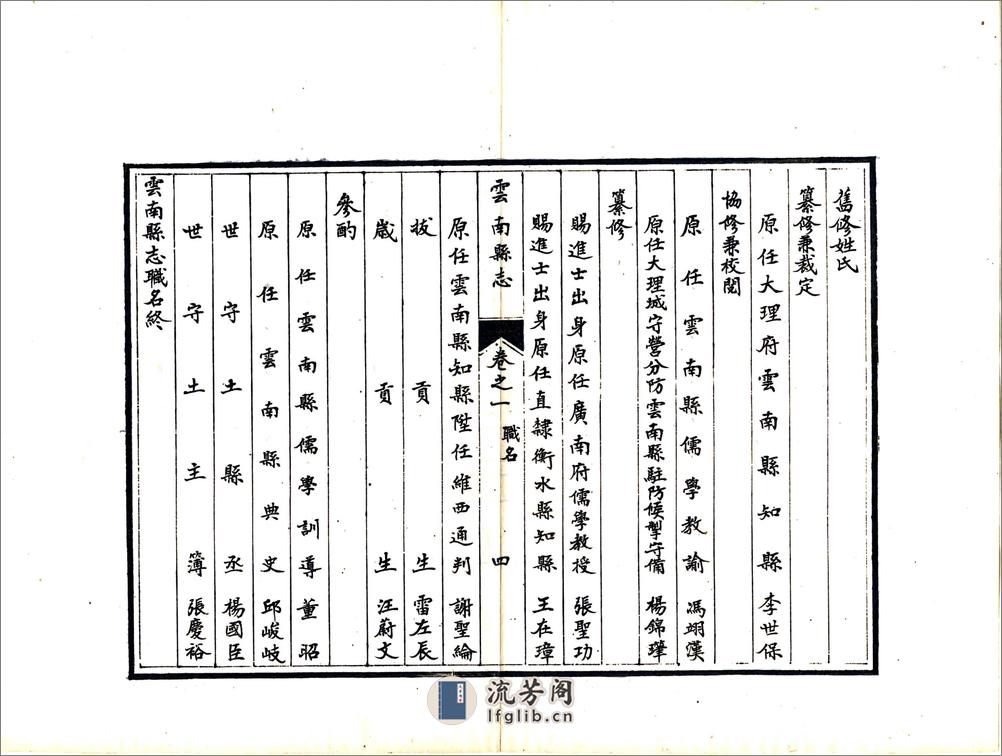 舊修姓氏
纂修兼裁定
原任大理府雲南縣知縣 李世保
協修兼校閱
原任雲南縣儒學教諭 馮翊漢
原任大理城守營分防雲南縣駐防候掣守備 楊錦瑋
纂修
賜進士出身原任廣南府儒學教授 張聖功
賜進士出身原任直隸衡水縣知縣 王在璋
雲南縣志 卷之一 職名 四
原任雲南縣知縣陞任維西通判 謝聖綸
拔貢生 雷左辰
歲貢生 汪蔚文
參酌
原任雲南縣儒學訓導 董昭
原任雲南縣典史 邱峻岐
世守土縣丞 楊國臣
世守土主簿 張慶裕
雲南縣志職名終
流芳阁
lfglib.cn